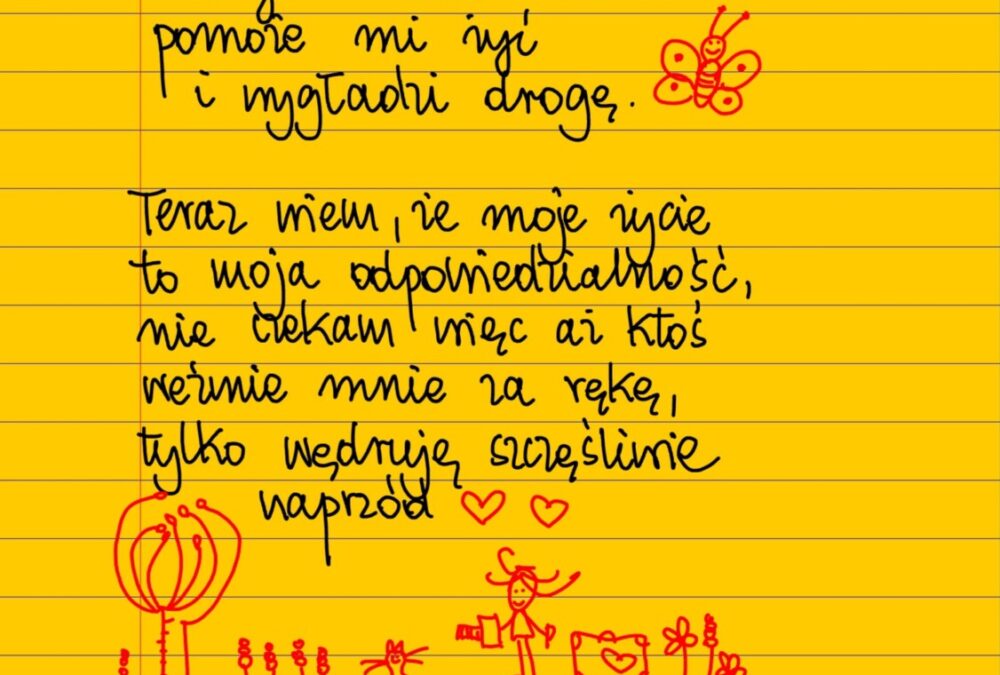 pomoże mi żyć
i wygładzi drogę.
Teraz wiem, że moje życie
to moja odpowiedzialność,
nie czekam więc aż ktoś
weźmie mnie za rękę,
tylko wędruję szczęśliwie
naprzód